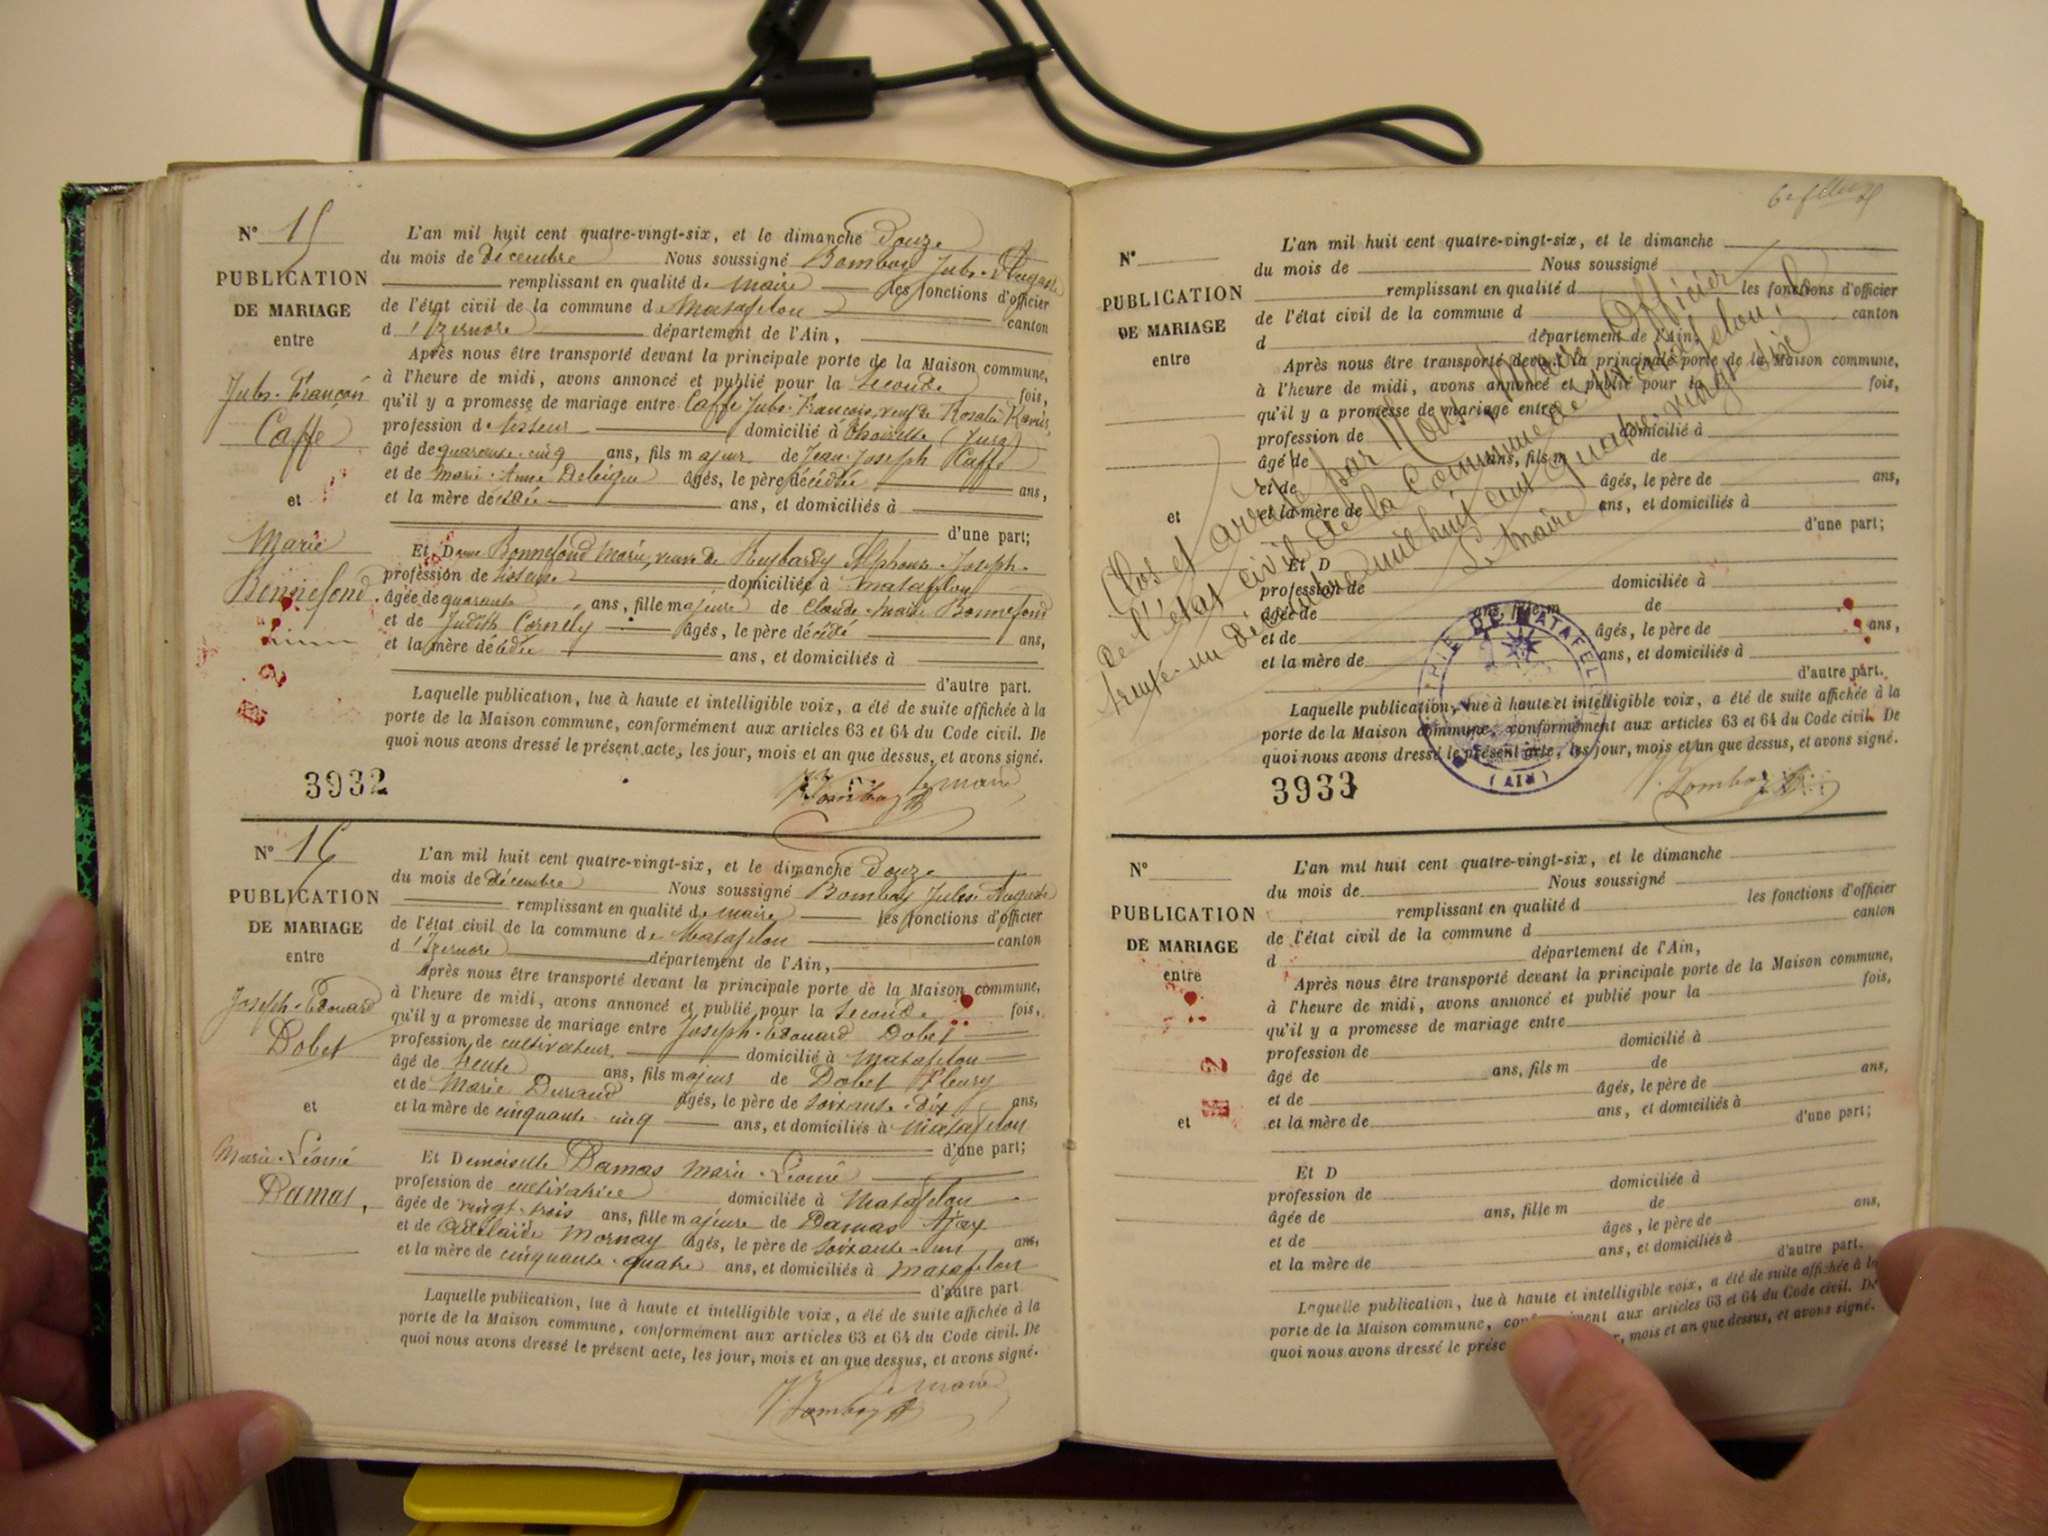 N° 15
PUBLICATION
DE MARIAGE
entre
Jules-François
Caffe
et
Marie
Bonnefond
L'an mil huit cent quatre-vingt-six, et le dimanche Douze
du mois de décembre Nous soussigné Bombay Jules-Auguste
remplissant en qualité de maire les fonctions d'officier
de l'état civil de la commune de Matafelon canton
d'Izernore département de l'Ain,
Après nous être transporté devant la principale porte de la Maison commune,
à l'heure de midi, avons annoncé et publié pour la Seconde fois,
qu'il y a promesse de mariage entre Caffe Jules-François, veuf de Rosalie
profession de domicilié à (Jura)
âgé de quarante-cinq ans, fils majeur de Jean-Joseph Caffe
et de Marie-Anne âgés, le père décédé ans,
et la mère décédée ans, et domiciliés à
d'une part;
Et Dame Bonnefond Marie, veuve de Alphonse-Joseph
profession de domiciliée à Matafelon
âgée de quarante ans, fille majeure de Claude-Marie Bonnefond
et de Judith Cornely âgés, le père décédé ans,
et la mère décédée ans, et domiciliés à
d'autre part.
Laquelle publication, lue à haute et intelligible voix, a été de suite affichée à la
porte de la Maison commune, conformément aux articles 63 et 64 du Code civil. De
quoi nous avons dressé le présent acte, les jour, mois et an que dessus, et avons signé.
Le maire
3932
J. Bombay
N° 16
PUBLICATION
DE MARIAGE
entre
Joseph-Edouard
Dobet
et
Marie-Léonie
Damas,
L'an mil huit cent quatre-vingt-six, et le dimanche Douze
du mois de décembre Nous soussigné Bombay Jules Auguste
remplissant en qualité de maire les fonctions d'officier
de l'état civil de la commune de Matafelon canton
d'Izernore département de l'Ain,
Après nous être transporté devant la principale porte de la Maison commune,
à l'heure de midi, avons annoncé et publié pour la Seconde fois,
qu'il y a promesse de mariage entre Joseph-Edouard Dobet
profession de cultivateur domicilié à Matafelon
âgé de trente ans, fils majeur de Dobet Fleury
et de Marie Durand âgés, le père de soixante-dix ans,
et la mère de cinquante-cinq ans, et domiciliés à Matafelon
d'une part;
Et Demoiselle Damas Marie-Léonie
profession de cultivatrice domiciliée à Matafelon
âgée de vingt-trois ans, fille majeure de Damas Ajax
et de Adélaïde Mornay âgés, le père de soixante-un ans,
et la mère de cinquante-quatre ans, et domiciliés à Matafelon
d'autre part.
Laquelle publication, lue à haute et intelligible voix, a été de suite affichée à la
porte de la Maison commune, conformément aux articles 63 et 64 du Code civil. De
quoi nous avons dressé le présent acte, les jour, mois et an que dessus, et avons signé.
Le maire
J. Bombay
N°
PUBLICATION
DE MARIAGE
entre
et
L'an mil huit cent quatre-vingt-six, et le dimanche
du mois de Nous soussigné
remplissant en qualité d les fonctions d'officier
de l'état civil de la commune d canton
d département de l'Ain,
Après nous être transporté devant la principale porte de la Maison commune,
à l'heure de midi, avons annoncé et publié pour la fois,
qu'il y a promesse de mariage entre
profession de domicilié à
âgé de ans, fils m de
et de âgés, le père de ans,
et la mère de ans, et domiciliés à
d'une part;
Et D
profession de domiciliée à
âgée de ans, fille m de
et de âgés, le père de ans,
et la mère de ans, et domiciliés à
d'autre part.
Laquelle publication, lue à haute et intelligible voix, a été de suite affichée à la
porte de la Maison commune, conformément aux articles 63 et 64 du Code civil. De
quoi nous avons dressé le présent acte, les jour, mois et an que dessus, et avons signé.
Clos et arrêté par Nous, Maire Officier
de l'état civil de la Commune de Matafelon, le
trente-un décembre mil huit cent quatre-vingt-six
Le Maire
MAIRIE DE MATAFELON
(AIN)
3933
J. Bombay
N°
PUBLICATION
DE MARIAGE
entre
et
L'an mil huit cent quatre-vingt-six, et le dimanche
du mois de Nous soussigné
remplissant en qualité d les fonctions d'officier
de l'état civil de la commune d canton
d département de l'Ain,
Après nous être transporté devant la principale porte de la Maison commune,
à l'heure de midi, avons annoncé et publié pour la fois,
qu'il y a promesse de mariage entre
profession de domicilié à
âgé de ans, fils m de
et de âgés, le père de ans,
et la mère de ans, et domiciliés à
d'une part;
Et D
profession de domiciliée à
âgée de ans, fille m de
et de âgés, le père de ans,
et la mère de ans, et domiciliés à
d'autre part.
Laquelle publication, lue à haute et intelligible voix, a été de suite affichée à la
porte de la Maison commune, conformément aux articles 63 et 64 du Code civil. De
quoi nous avons dressé le prése mois et an que dessus, et avons signé.